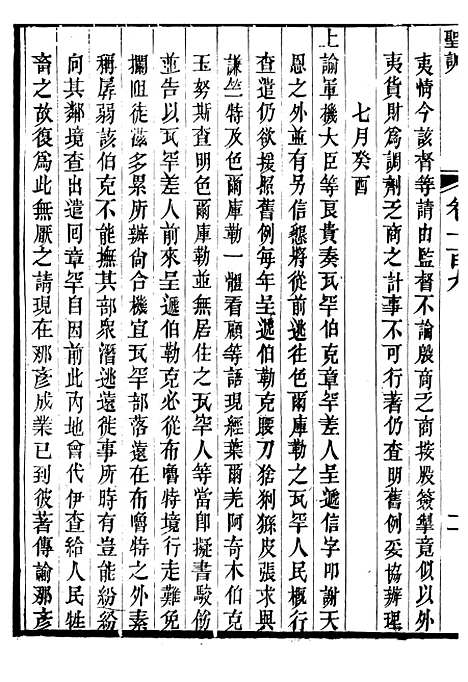 聖訓
卷一百九
二
夷情今該督等請由監督不論殷商之商按股簽掣竟似以外
夷貨財為調劑乏商之計事不可行著仍查明舊例妥協辦理
七月癸酉
上諭軍機大臣等良貴奏瓦罕伯克章罕差人呈遞信字叩謝天
恩之外另信懇將從前逃往色爾庫勒之瓦罕人民概行
查遣仍欲援照舊例每年呈遞伯勒克腰刀猞猁猻皮張求與
謙竺特及色爾庫勒一體看顧等語現經葉爾羌阿奇木伯克
玉努斯查明色爾庫勒並無居住之瓦罕人等當即擬書駁飭
並告以瓦罕差人前來呈遞伯勒克必從布嚕特境行走難免
攔阻徒滋多累所辦尚合機宜瓦罕部落遠在布嚕特之外素
稱孱弱該伯克不能撫其部眾潛逃遠徙事所時有豈能紛紛
向其鄰境查出遣回章罕自因前此內地會代伊查給人民牲
畜之故復為此無厭之請現在那彥成業已到彼著傳諭那彥